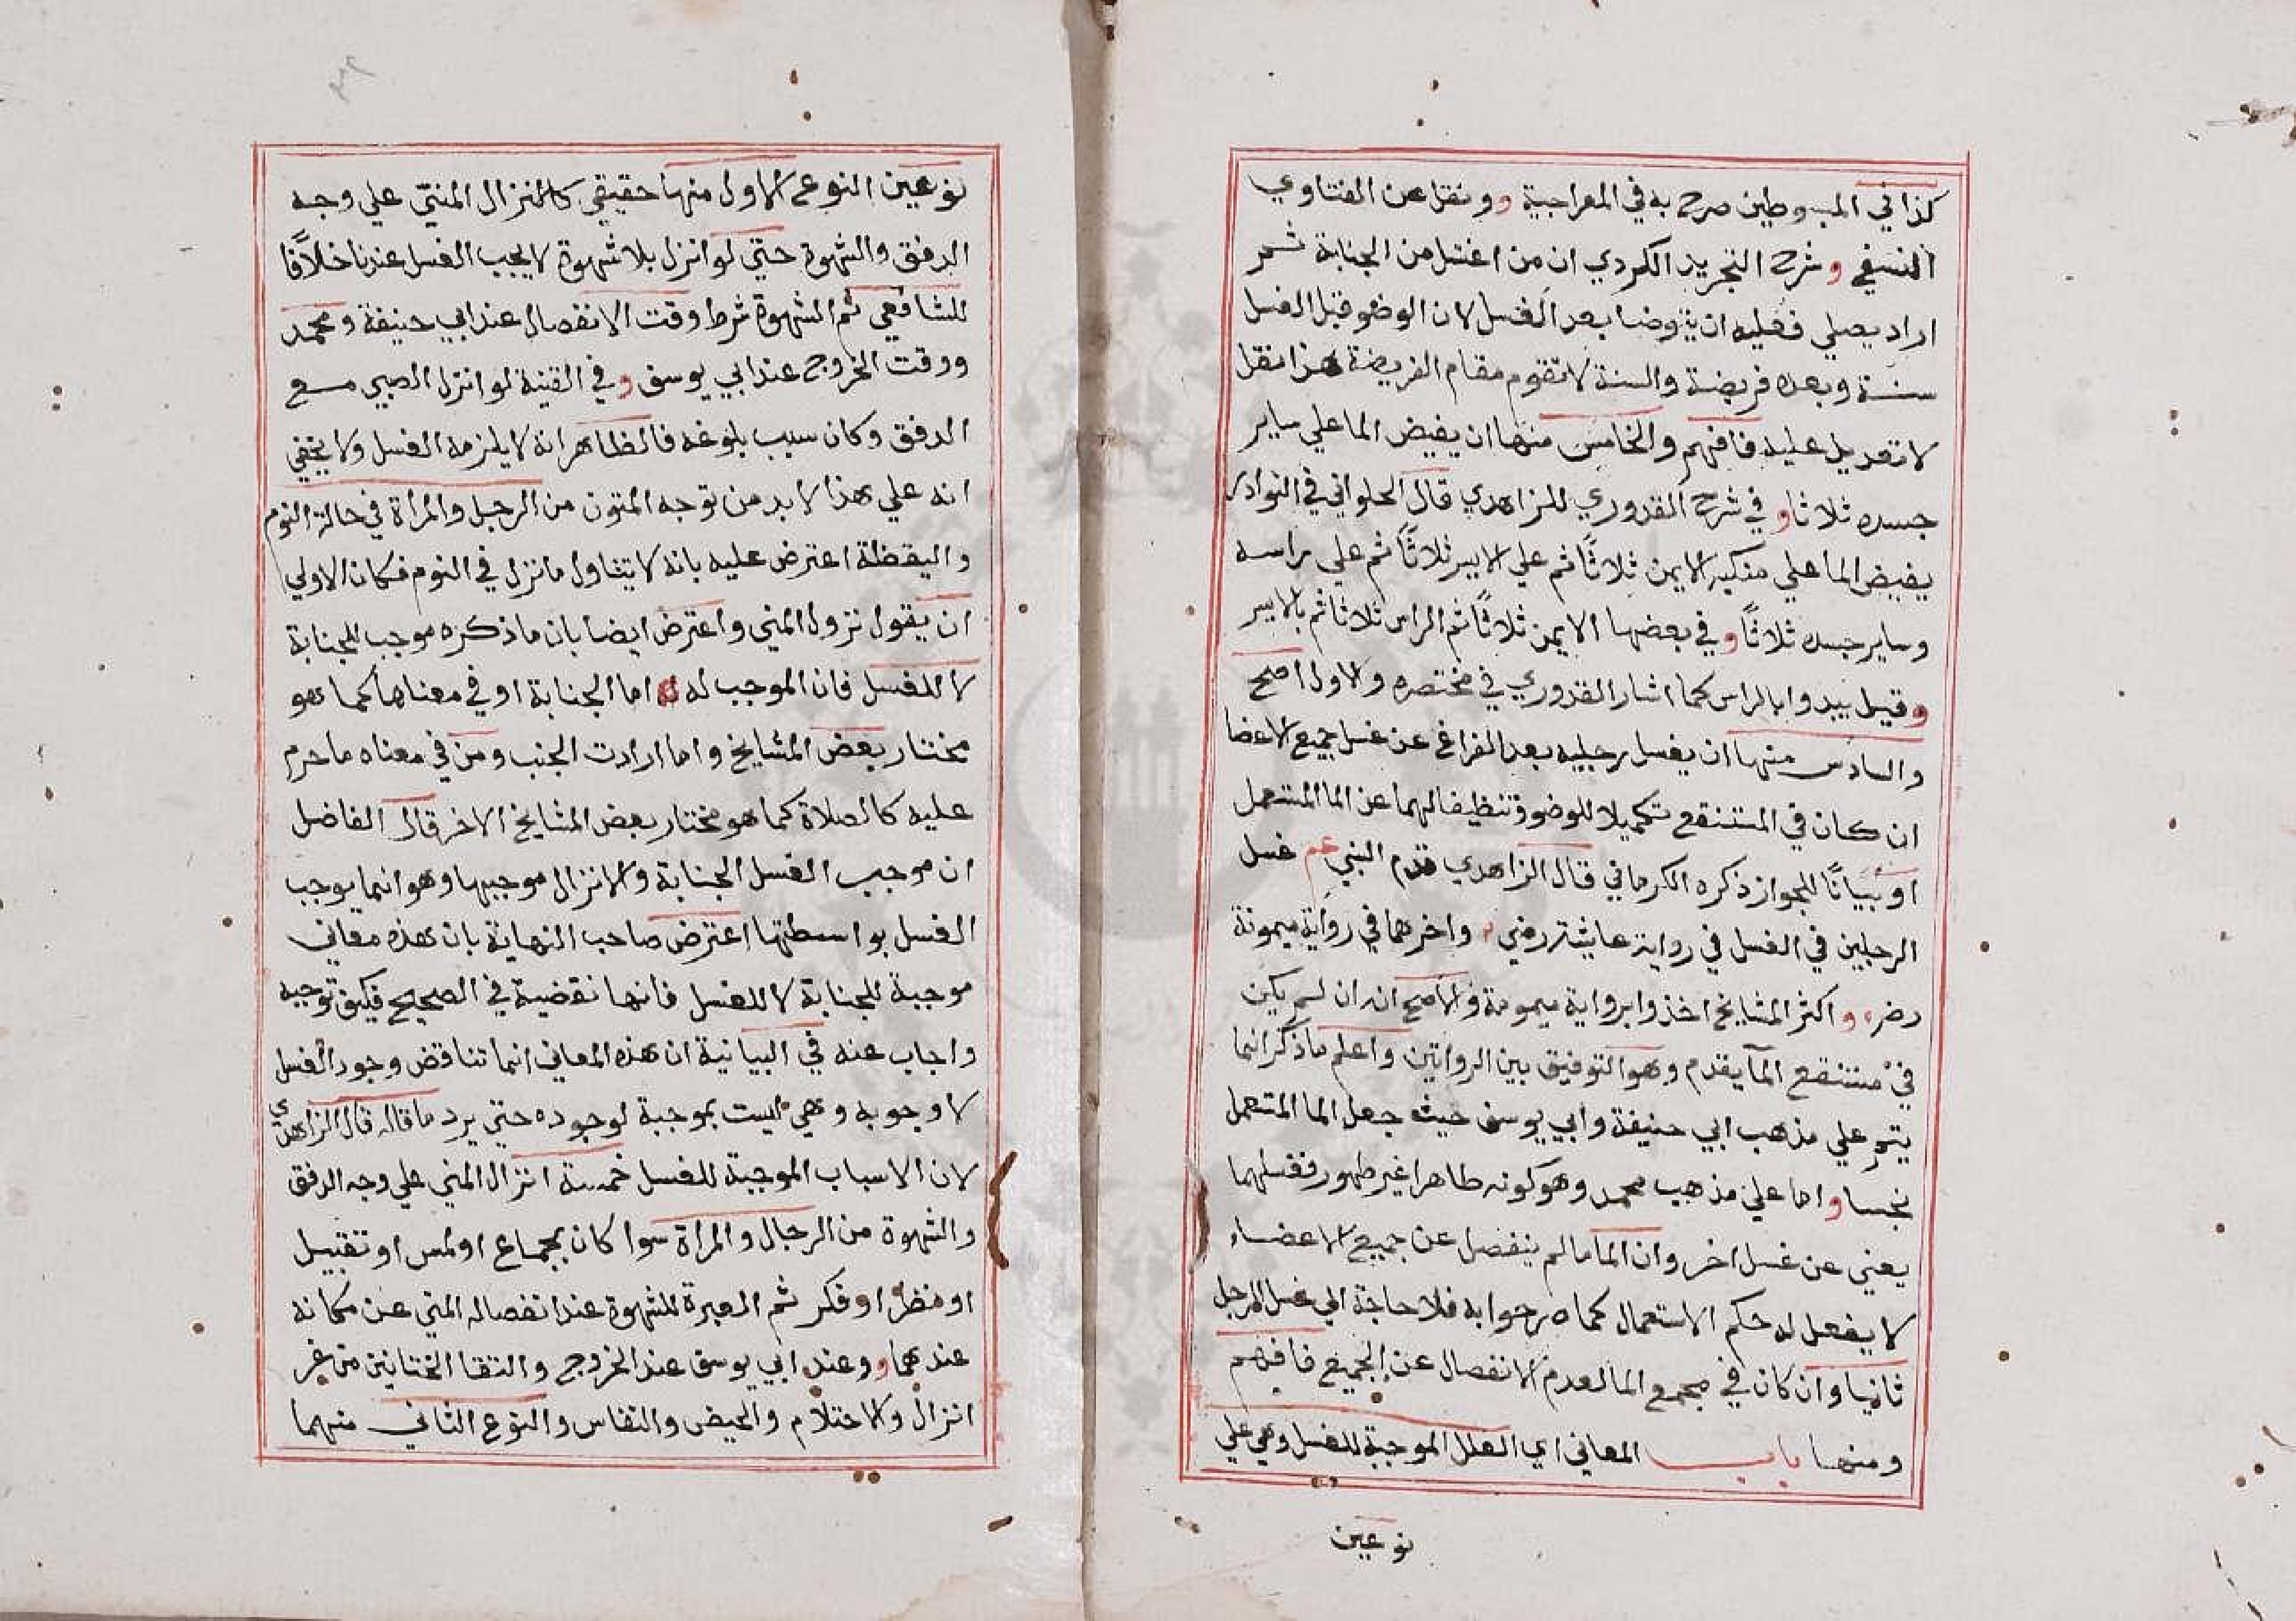 كذا في المبسوطين صرح به في المعراجية وونقل عن الفتاوي
النسفي وشرح التجريد الكردي ان من اغتسل من الجنابة ثمر
اراد يصلي فعليه ان يتوضا بعد الغسل لان الوضو قبل الغسل
سنة وبعده فريضة والسنة لا تقوم مقام الفريضة هذا نقل
لا تعديل عليه فافهم والخامس منها ان يفيض الما علي ساير
جسده ثلاثا وفي شرح القدوري للزاهدي قال الحلواني في النوادر
يفيض الما علي منكبه الايمن ثلاثًا ثم علي الايسر ثلاثًا ثم علي راسه
وساير جسده ثلاثًا وفي بعضها الايمن ثلاثًا ثم الراس ثلاثا ثم بالايسر
وقيل يبدوا بالراس كما اشار القدوري في مختصره والاول اصح
والسادس منها ان يغسل رجليه بعد الفراغ عن غسل جميع الاعضا
ان كان في المستنقع تكميلا للوضو وتنظيفا لهما عن الما المستعمل
او بيانًا للجواز ذكره الكرماني قال الزاهدي قدم النبي عم غسل
الرجلين في الغسل في رواية عايشة رضي واخرهما في رواية ميمونة
رضه واكثر المشايخ اخذوا برواية ميمونة والاصح انه ان لم يكن
في مستنقع الما يقدم وهو التوفيق بين الرواتين واعلم ماذكر انما
يتم علي مذهب ابي حنيفة وابي يوسف حيث جعل الما المستعمل
نجسا واما علي مذهب محمد وهو كونه طاهرا غير طهور فغسلهما
يغني عن غسل اخر وان الما مالم ينفصل عن جميع الاعضاء
لا يفعل له حكم الاستعمال كما صرحوا به فلا حاجة الي غسل الرجل
ثانيا وان كان في مجمع الما لعدم الانفصال عن الجميع فافهم
ومنها باب المعاني اي العلل الموجبة للغسل وهي علي
نوعين
نوعين النوع الاول منها حقيقي كالانزال المنيّ علي وجه
الدفق والشهوة حتي لو انزل بلا شهوة لا يجب الغسل عندنا خلافًا
للشافعي ثم الشهوة شرط وقت الانفصال عند ابي حنيفة ومحمد
ووقت الخروج عند ابي يوسف وفي القنية لو انزل الصبي مع
الدفق وكان سبب بلوغه فالظاهر انه لا يلزمه الغسل ولا يخفي
انه علي هذا لا بد من توجه المتون من الرجل والمراة في حالة النوم
واليقظة اعترض عليه بانه لا يتناول مانزل في النوم فكان الاولي
ان يقول نزول المني واعترض ايضا بان ماذكره موجب للجنابة
لا للغسل فان الموجب له اما الجنابة او في معناها كما هو
مختار بعض المشايخ واما ارادت الجنب ومن في معناه ماحرم
عليه كالصلاة كما هو مختار بعض المشايخ الاخر قال الفاضل
ان موجب الغسل الجنابة والانزال موجبها وهو انما يوجب
الغسل بواسطتها اعترض صاحب النهاية بان هذه معاني
موجبة للجنابة لا للغسل فانها نقضية في الصحيح فكيف توجبه
واجاب عنه في البيانية ان هذه المعاني انما تناقض وجود الغسل
لا وجوبه وهي ليست بموجبة لوجوده حتي يرد ماقاله قال الزاهدي
لان الاسباب الموجبة للغسل خمسة انزال المني علي وجه الدفق
والشهوة من الرجال والمراة سوا كان بجماع او لمس او تقبيل
او نظر او فكر ثم العبرة للشهوة عند انفصاله المني عن مكانه
عندهما ووعند ابي يوسف عند الخروج والتقا الختانين من غر
انزال والاحتلام والحيض والنفاس والنوع الثاني منهما